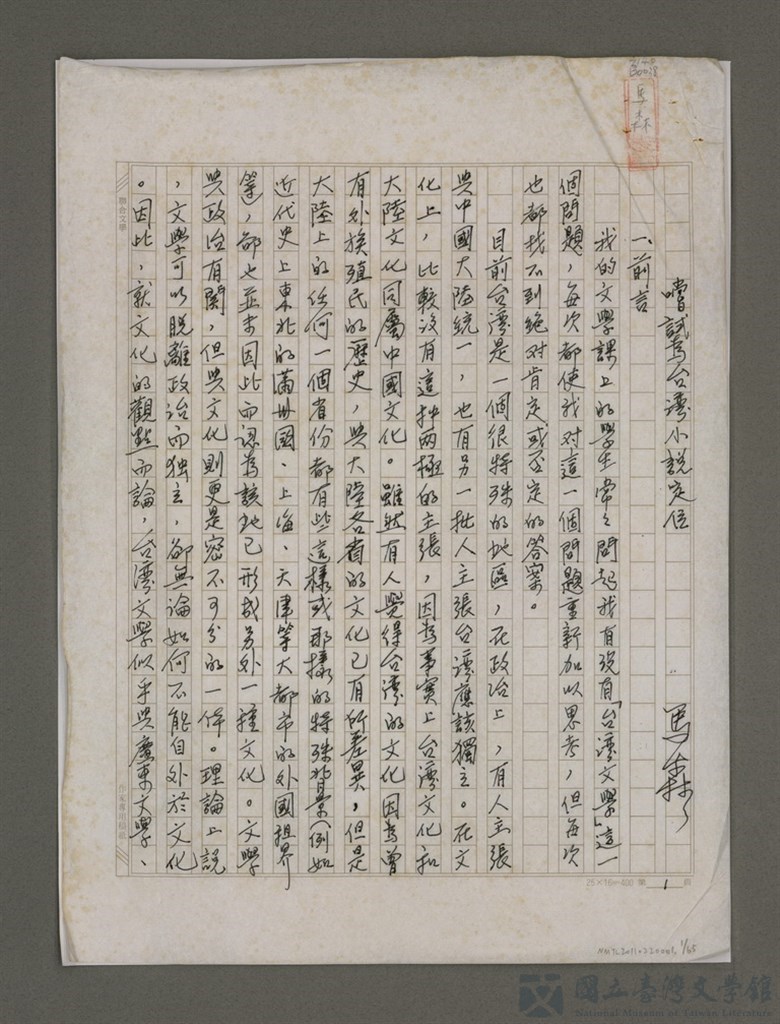 馬森
嚐試為台灣小說定位
馬森
一、前言
我的文學課上的學生常々問起我有沒有「台灣文學」這一
個問題，每次都使我对這一個問題重新加以思考，但每次
也都找不到絕对肯定或否定的答案。
目前台灣是一個很特殊的地區，在政治上，有人主張
與中國大陸統一，也有另一批人主張台灣應該獨立。在文
化上，比較沒有這种兩極的主張，因為事實上台灣文化和
大陸文化同屬中國文化。雖然有人覺得台灣的文化因為曾
有外族殖民的歷史，與大陸各省的文化已有所差異，但是
大陸上的任何一個省份都有些這樣或那樣的特殊背景（例如
近代史上東北的滿州國、上海、天津等大都市的外國租界
等），卻也並未因此而認為該地已形成另外一種文化。文學
與政治有關，但與文化則更是密不可分的一体。理論上說
，文學可以脫離政治而独立，卻無論如何不能自外於文化
。因此，就文化的觀點而論，台灣文學似乎與廣東文學、
聯合文學
作家專用稿紙
25×16=400 第 1 頁
1/65
國立臺灣文學館
National Museum of Taiwan Literature